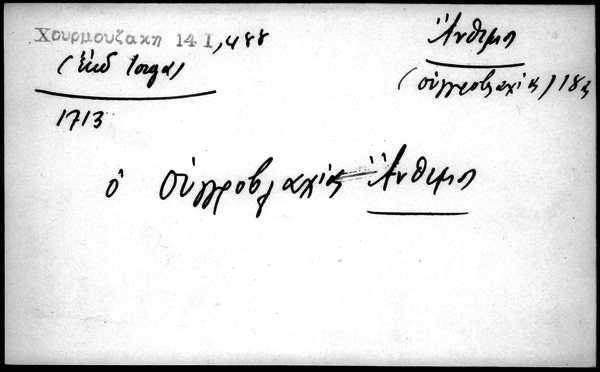 Χουρμουζακη 14 Ι, 488
(Ἐκδ Ιοργα)
1713
Ἄνθιμο
(οὑγγροβλαχίας) 183
ὁ οὑγγροβλαχίας Ἄνθιμο